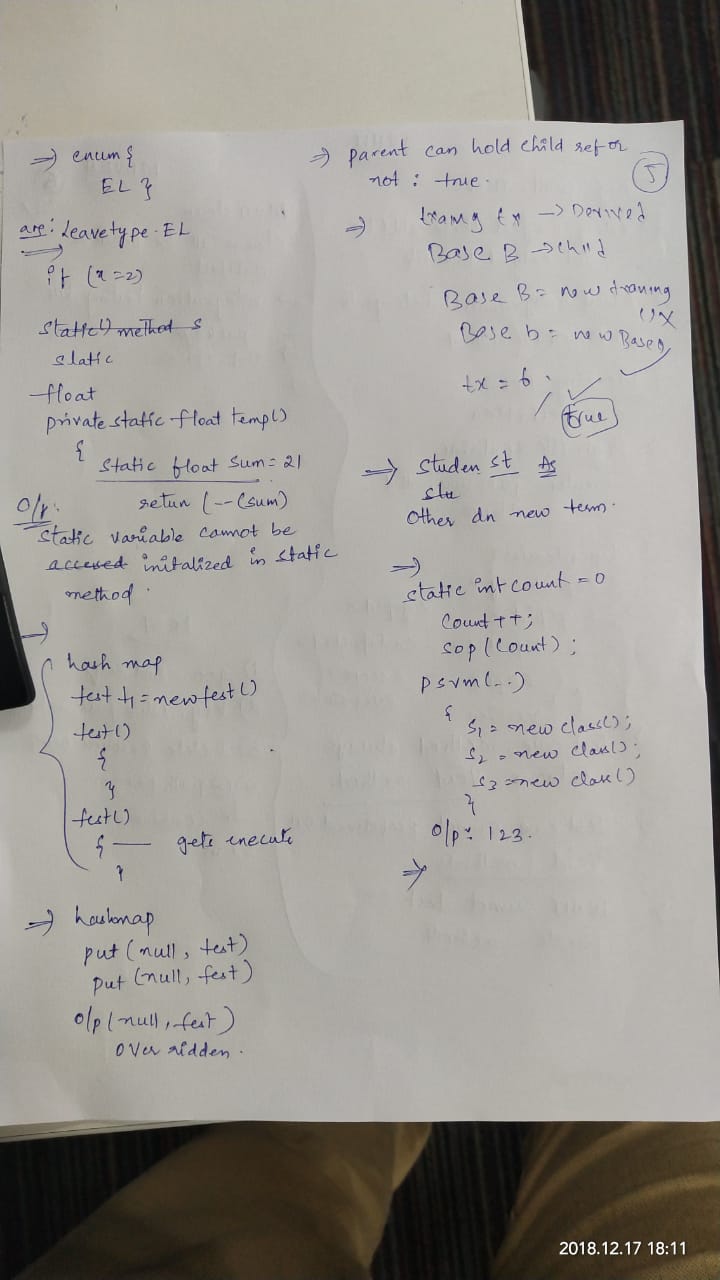 ⇒ enum {
EL }
ans: Leavetype.EL
if (x=2)
static() method s
static
float
private static float temp()
{
static float sum=21
retun (--(sum)
O/p:
static variable cannot be
accesed initalized in static
method.
⇒
hash map
test t1=new fest()
test()
{
}
fest()
{ — gets execute
}
⇒ hashmap
put (null, test)
put (null, fest)
o/p (null, fest)
over ridden.
⇒ parent can hold child ref or
not : true.
5
⇒ trang tx → Derived
Base B → child
Base B = new traning
() X
Base b = new Base()
tx = b.
true
⇒ Studen st As
stu
other dn new team.
⇒
static int count = 0
Count ++;
sop (Count);
psvm(--)
{
S1 = new class();
S2 = new class();
S3 = new class()
}
o/p: 123.
⇒
2018.12.17 18:11